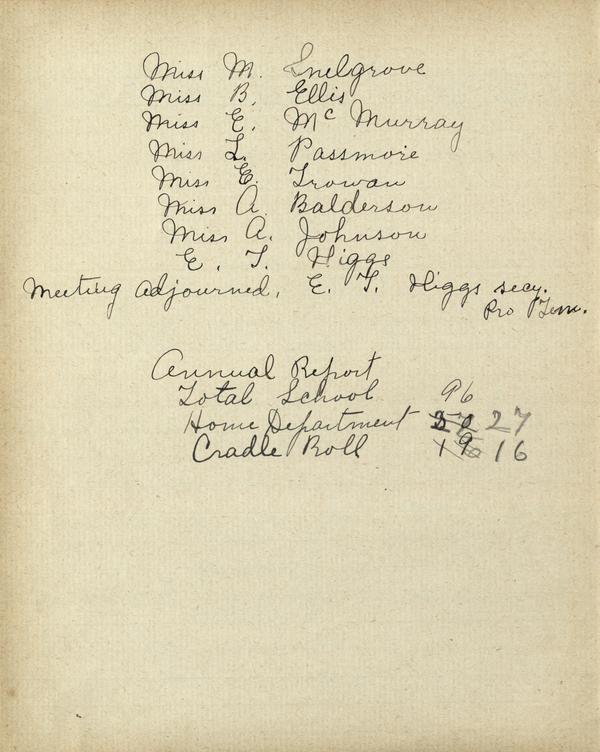 Miss M. Snelgrove
Miss B. Ellis
Miss E. Mc Murray
Miss L. Passmore
Miss E. Trowan
Miss A. Balderson
Miss A. Johnson
E. T. Higgs
Meeting adjourned. E. T. Higgs secy.
Pro Tem.
Annual Report
Total School 96
Home Department 27
Cradle Roll 16